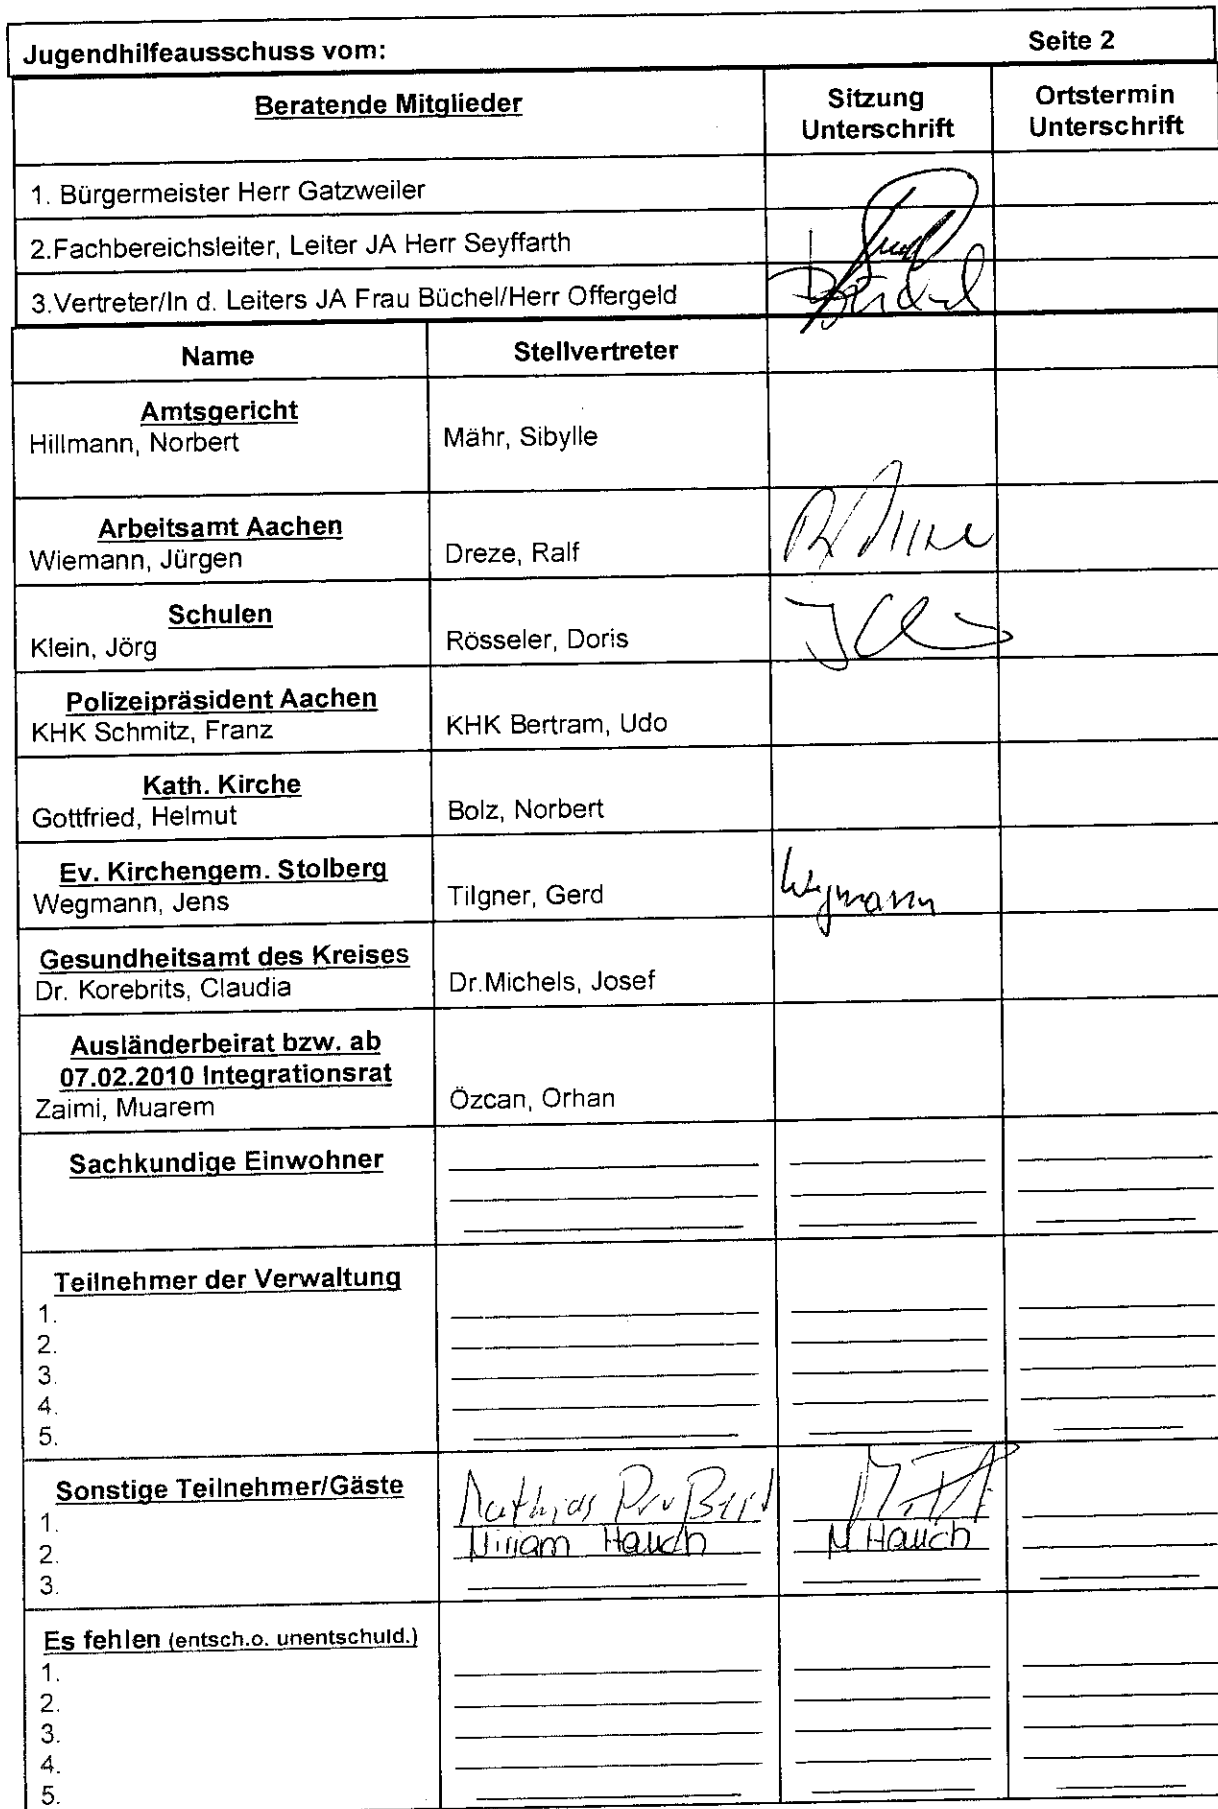 Jugendhilfeausschuss vom: Seite 2
Beratende Mitglieder
Sitzung Unterschrift
Ortstermin Unterschrift
1. Bürgermeister Herr Gatzweiler
2.Fachbereichsleiter, Leiter JA Herr Seyffarth
3.Vertreter/In d. Leiters JA Frau Büchel/Herr Offergeld
Name Stellvertreter
Amtsgericht
Hillmann, Norbert Mähr, Sibylle
Arbeitsamt Aachen
Wiemann, Jürgen Dreze, Ralf
Schulen
Klein, Jörg Rösseler, Doris
Polizeipräsident Aachen
KHK Schmitz, Franz KHK Bertram, Udo
Kath. Kirche
Gottfried, Helmut Bolz, Norbert
Ev. Kirchengem. Stolberg
Wegmann, Jens Tilgner, Gerd Wegmann
Gesundheitsamt des Kreises
Dr. Korebrits, Claudia Dr.Michels, Josef
Ausländerbeirat bzw. ab
07.02.2010 Integrationsrat
Zaimi, Muarem Özcan, Orhan
Sachkundige Einwohner
Teilnehmer der Verwaltung
1.
2.
3.
4.
5.
Sonstige Teilnehmer/Gäste
1. Mathias
2. Miriam Hauch M Hauch
3.
Es fehlen (entsch.o. unentschuld.)
1.
2.
3.
4.
5.